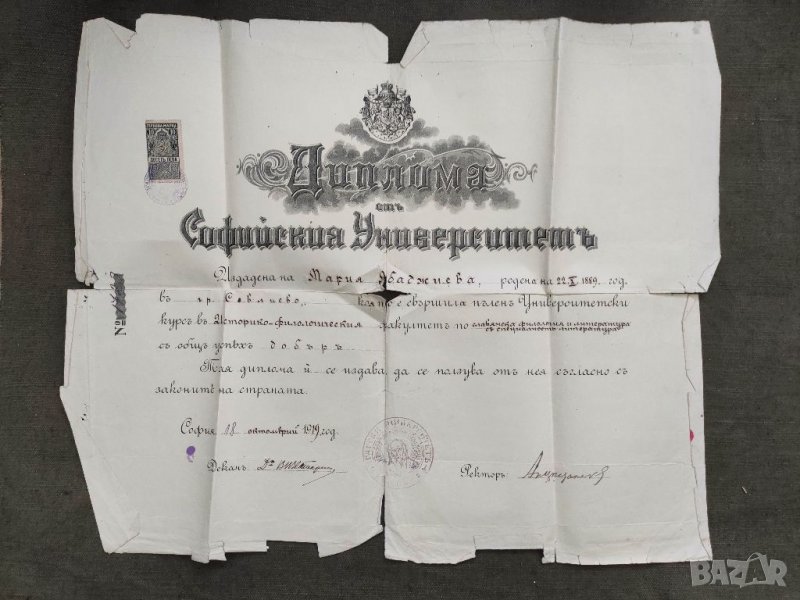 Диплома
отъ
Софийския Университетъ
Издадена на Мария Абаджиева, родена на 22 X 1889 год.
въ гр. Севлиево, която е свършила пъленъ Университетски
курсъ въ Историко-филологическия факултетъ по славянска филология и литература
съ специалность литература
съ общъ успѣхъ добъръ
Тая диплома ѝ се издава, да се ползува отъ нея съгласно съ
законитѣ на страната.
№
София октомврий 1919 год.
Деканъ:
Ректоръ:
BAZAR